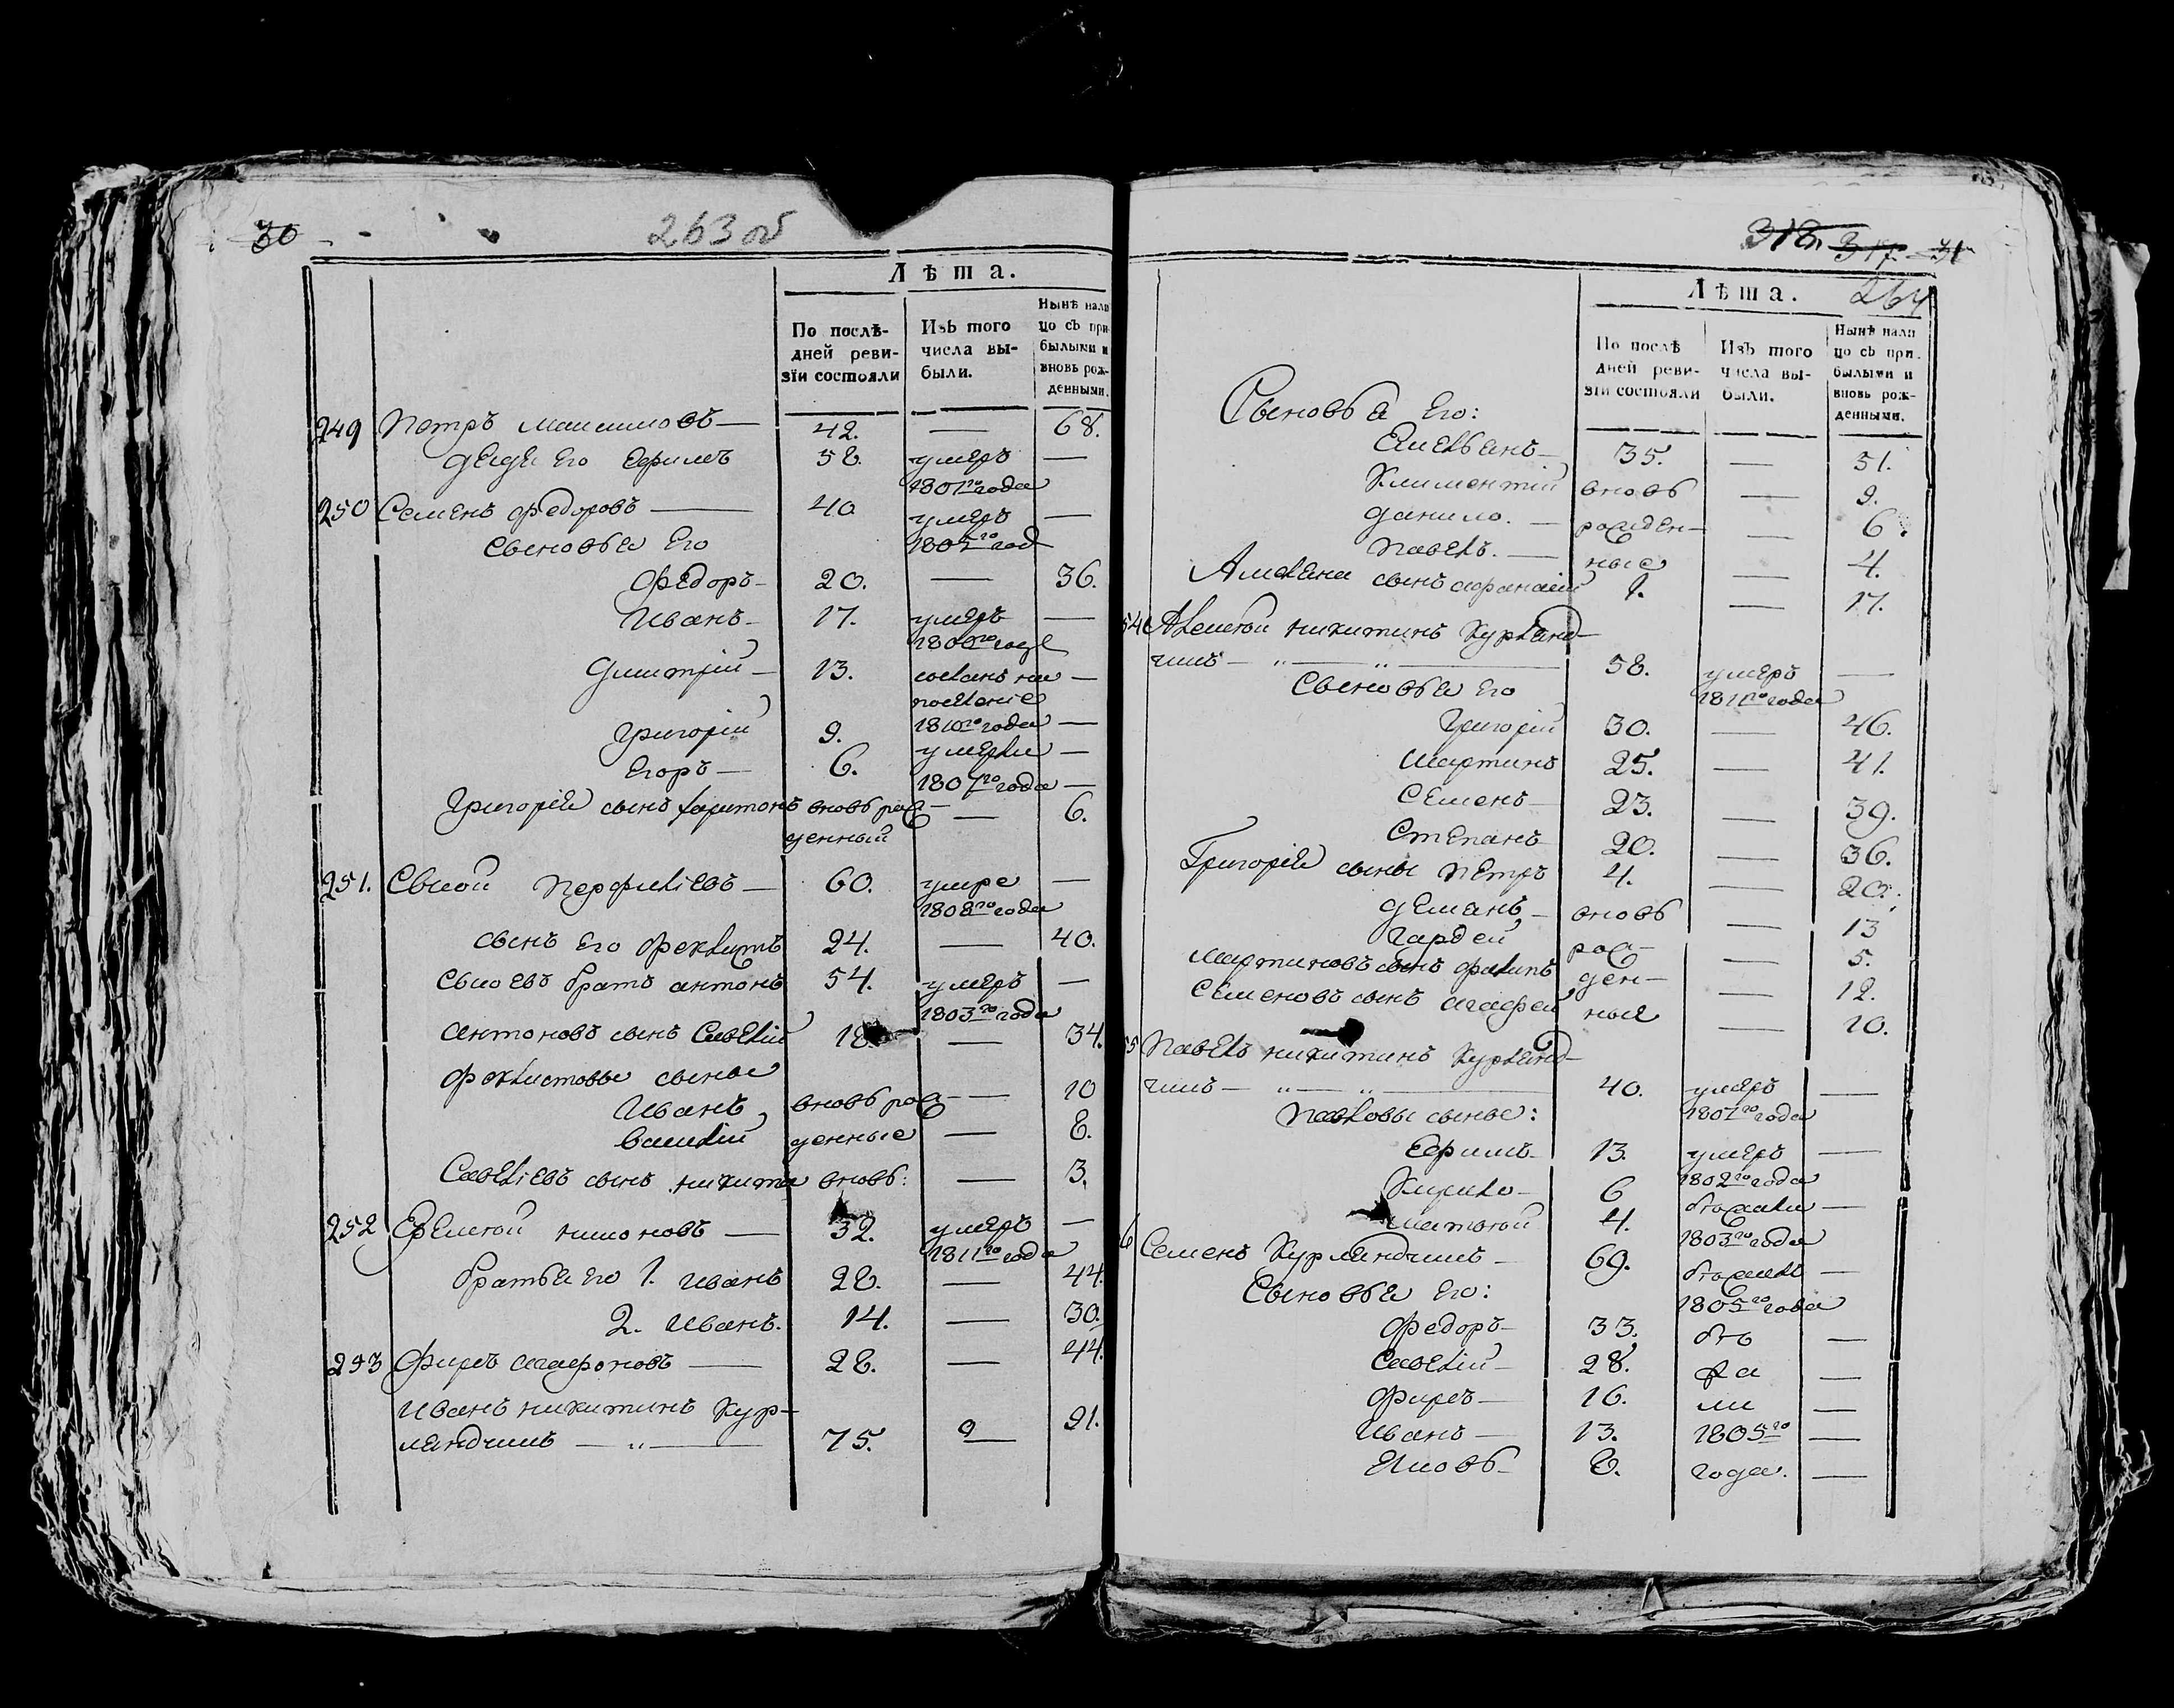 30
263 об
Лѣта.
По послѣ-
дней реви-
зіи состояли
Изъ того
числа вы-
были.
Нынѣ нали
цо съ при-
былыми и
вновь рож-
денными.
249 Петръ Максимовъ — 42. — 68.
дядя Его Ефимъ 58. умеръ —
1801го года
250 Семенъ Федоровъ — 40 умеръ —
Сыновья Его 1805го год
Федоръ — 20. — 36.
Иванъ — 17. умеръ —
1800го года
Дмитрій — 13. сосланъ на —
поселеніе
1810го года —
Григорій 9. умерли —
Егоръ — 6. 1807го года —
Григорія сынъ Харитонъ вновь рож- — 6.
денный
251. Сысой Перфильевъ — 60. умре —
1808го года
сынъ Его Феклистъ 24. — 40.
Сысоевъ братъ антонъ 54. умеръ —
1803го года
антоновъ сынъ Савелій 18. — 34.
Феклистовы сынове
Иванъ вновь рож- — 10
Василій денные — 8.
Савельевъ сынъ никита вновь: — 3.
252 Еремей 32. умеръ —
1811го года
братья его 1. иванъ 28. — 44.
2. иванъ. 14. — 30.
253 Фирсъ агафоновъ — 28. — 44.
иванъ никитинъ Кур-
ляндчикъ — „ — 75. — 91.
318. 317. 31
264
Лѣта.
По послѣ
дней реви-
зіи состояли
Изъ того
числа вы-
были.
Нынѣ нали
цо съ при-
былыми и
вновь рож-
денными.
Сыновья Его:
Емельянъ — 35. — 51.
Климентій вновь — 9.
данило. — рожден- — 6.
павелъ. — ные — 4.
Амельяна сынъ афанасій 1. — 17.
54 Алексей никитинъ Курлянд-
чикъ — „ — „ — 58. умеръ —
Сыновья Его 1811го года
Григорій 30. — 46.
Мартинъ 25. — 41.
Семенъ — 23. — 39.
Степанъ 20. — 36.
Григорія сыны Петръ 4. — 20.
демянъ — вновь — 13
Гардей рож- — 5.
Мартиновъ сынъ филипъ ден- — 12.
Семеновъ сынъ агафей ные — 10.
55 Павелъ никитинъ Курлянд-
чикъ — „ — „ — 40. умеръ —
Павловы сынове: 1801го года
Ефимъ — 13. умеръ —
1802го года
Кирило — 6 бежали —
4. 1803го года
6 Семенъ Курляндчикъ — 69. бежалъ —
Сыновья Его: 1805го года
Федоръ — 33. бѣ —
Савелій — 28. жа —
Фирсъ — 16. ли —
Иванъ — 13. 1805го —
Яковъ — 8. года. —